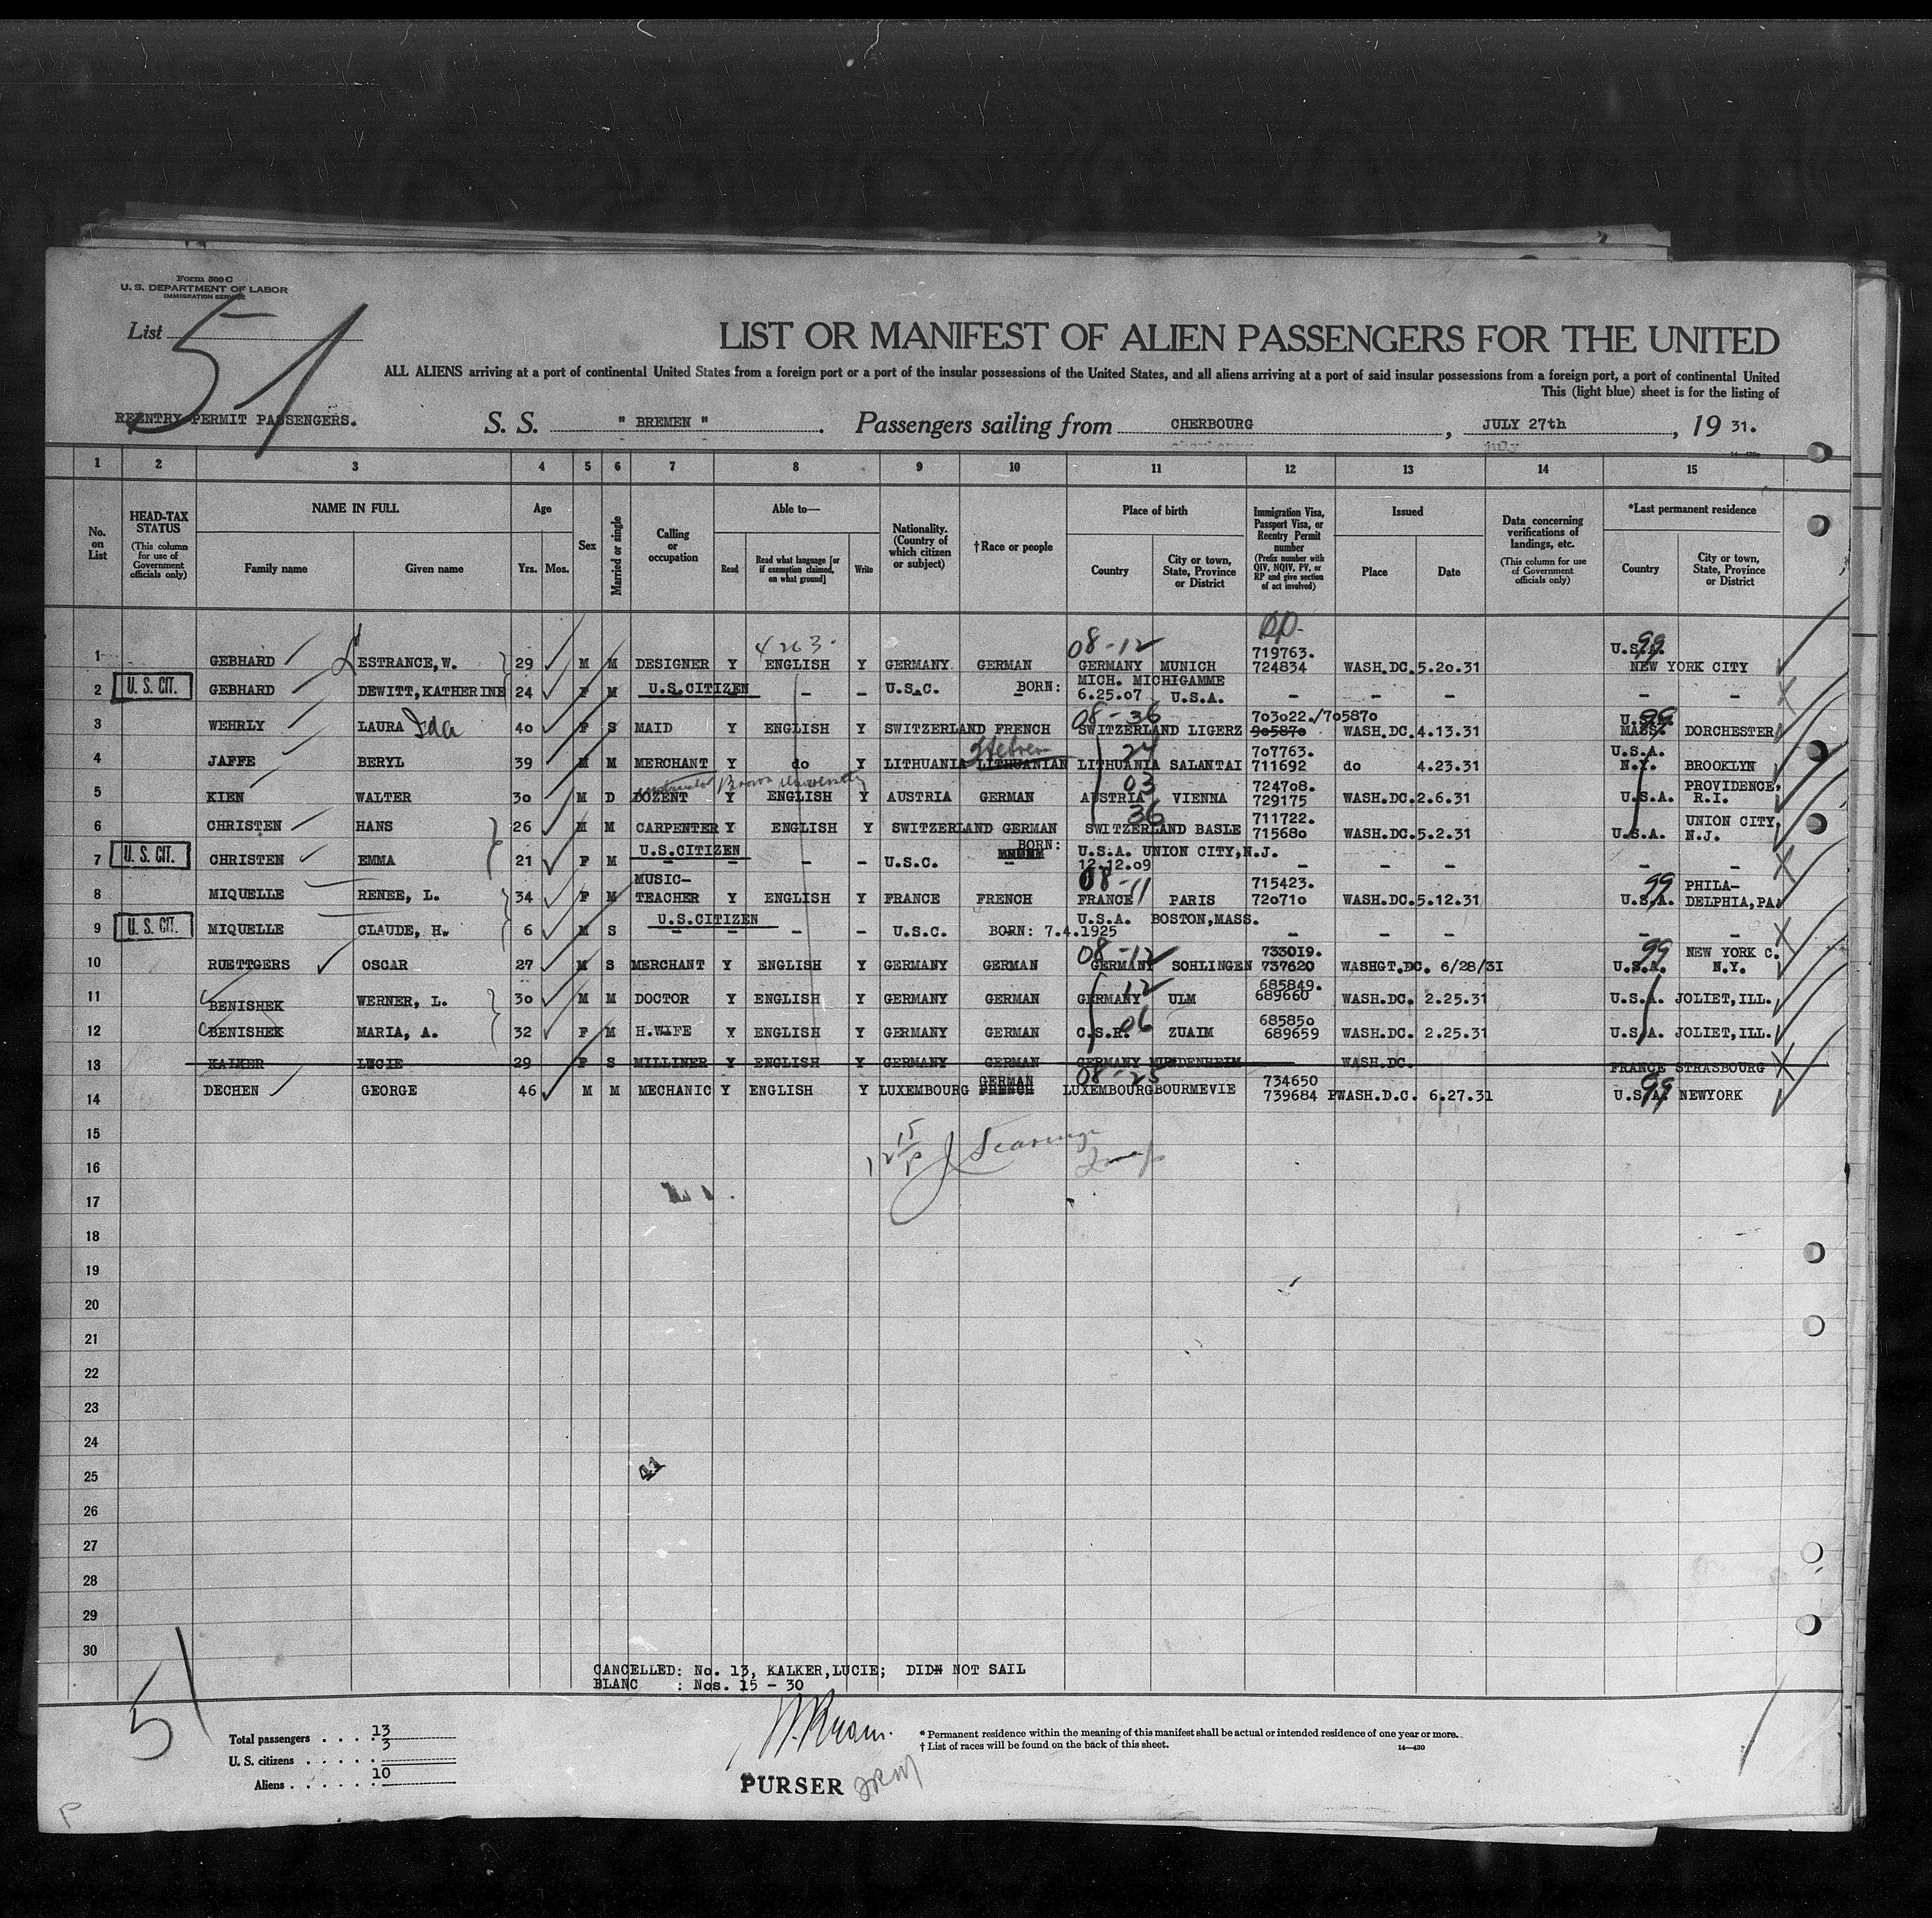 Form 500 C
U. S. DEPARTMENT OF LABOR
IMMIGRATION SERVICE
List 51
LIST OR MANIFEST OF ALIEN PASSENGERS FOR THE UNITED
ALL ALIENS arriving at a port of continental United States from a foreign port or a port of the insular possessions of the United States, and all aliens arriving at a port of said insular possessions from a foreign port, a port of continental United
This (light blue) sheet is for the listing of
REENTRY PERMIT PASSENGERS. S. S. " BREMEN ". Passengers sailing from CHERBOURG, JULY 27th, 19 31.
1 2 3 4 5 6 7 8 9 10 11 12 13 14 15
No. on List
HEAD-TAX STATUS (This column for use of Government officials only)
NAME IN FULL Family name Given name
Age Yrs. Mos.
Sex
Married or single
Calling or occupation
Able to— Read Read what language [or if exemption claimed, on what ground] Write
Nationality. (Country of which citizen or subject)
†Race or people
Place of birth Country City or town, State, Province or District
Immigration Visa, Passport Visa, or Reentry Permit number (Prefix number with QIV, NQIV, PV, or RP and give section of act involved)
Issued Place Date
Data concerning verifications of landings, etc. (This column for use of Government officials only)
*Last permanent residence Country City or town, State, Province or District
4263. 08-12 99
1 GEBHARD ESTRANCE, W. 29 M M DESIGNER Y ENGLISH Y GERMANY GERMAN GERMANY MUNICH 719763. 724834 WASH.DC. 5.20.31 U.S.A. NEW YORK CITY
2 U. S. CIT. GEBHARD DEWITT, KATHERINE 24 F M U.S.CITIZEN - - - U.S.C. BORN: MICH. MICHIGAMME 6.25.07 U.S.A. - - - - -
3 WEHRLY LAURA Ida 40 F S MAID Y ENGLISH Y SWITZERLAND FRENCH 08-36 SWITZERLAND LIGERZ 703022./705870 905870 WASH.DC. 4.13.31 U.S.A. 99 MASS. DORCHESTER
4 JAFFE BERYL 39 M M MERCHANT Y do Y LITHUANIA Hebrew LITHUANIAN 24 LITHUANIA SALANTAI 707763. 711692 do 4.23.31 U.S.A. N.Y. BROOKLYN
Brown University
5 KIEN WALTER 30 M D DOZENT Y ENGLISH Y AUSTRIA GERMAN 03 AUSTRIA VIENNA 724708. 729175 WASH.DC. 2.6.31 U.S.A. PROVIDENCE, R.I.
6 CHRISTEN HANS 26 M M CARPENTER Y ENGLISH Y SWITZERLAND GERMAN 36 SWITZERLAND BASLE 711722. 715680 WASH.DC. 5.2.31 U.S.A. UNION CITY, N.J.
7 U. S. CIT. CHRISTEN EMMA 21 F M U.S.CITIZEN - - - - U.S.C. BORN: - U.S.A. UNION CITY, N.J. 12.12.09 - - - - -
8 MIQUELLE RENEE, L. 34 F M MUSIC-TEACHER Y ENGLISH Y FRANCE FRENCH 08-11 FRANCE PARIS 715423. 720710 WASH.DC. 5.12.31 99 U.S.A. PHILA-DELPHIA, PA.
9 U. S. CIT. MIQUELLE CLAUDE, H. 6 M S U.S.CITIZEN - - - - U.S.C. BORN: 7.4.1925 U.S.A. BOSTON, MASS. - - - - -
10 RUETTGERS OSCAR 27 M S MERCHANT Y ENGLISH Y GERMANY GERMAN 08-12 GERMANY SOHLINGEN 733019. 737620 WASHGT.DC. 6/28/31 99 U.S.A. NEW YORK C. N.Y.
11 BENISHEK WERNER, L. 30 M M DOCTOR Y ENGLISH Y GERMANY GERMAN 12 GERMANY ULM 685849. 689660 WASH.DC. 2.25.31 U.S.A. JOLIET, ILL.
12 BENISHEK MARIA, A. 32 F M H.WIFE Y ENGLISH Y GERMANY GERMAN C.S.R. 06 ZUAIM 685850 689659 WASH.DC. 2.25.31 U.S.A. JOLIET, ILL.
13 KALKER LUCIE 29 F S MILLINER Y ENGLISH Y GERMANY GERMAN GERMANY WASH.DC. FRANCE STRASBOURG
14 DECHEN GEORGE 46 M M MECHANIC Y ENGLISH Y LUXEMBOURG GERMAN FRENCH 08-25 LUXEMBOURG BOURMEVIE 734650 739684 PWASH.D.C. 6.27.31 99 U.S.A. NEWYORK
15
16
17
18
19
20
21
22
23
24
25
26
27
28
29
30
CANCELLED: No. 13, KALKER, LUCIE; DIDN NOT SAIL
BLANC : Nos. 15 - 30
51
Total passengers . . . . 13
U. S. citizens . . . . . 3
Aliens . . . . . . 10
PURSER
* Permanent residence within the meaning of this manifest shall be actual or intended residence of one year or more.
† List of races will be found on the back of this sheet.
14—430